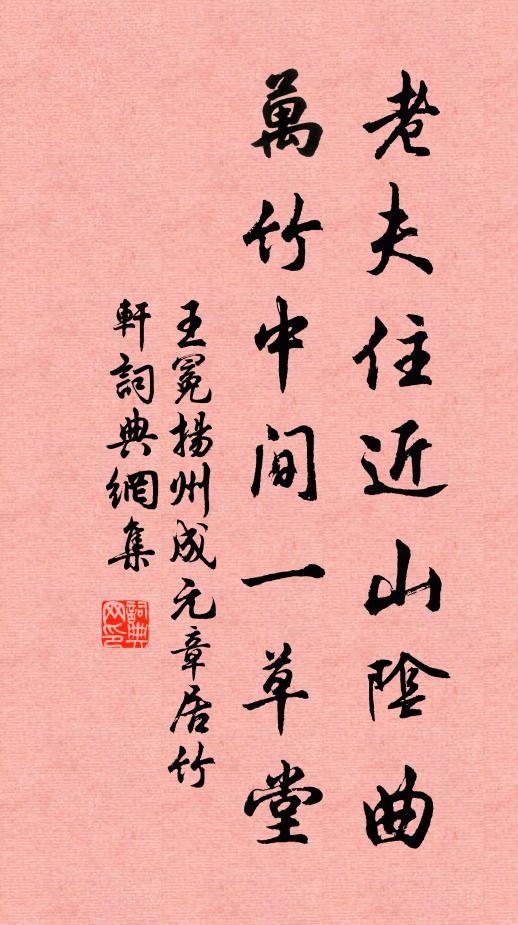 老夫住近山陰曲
萬竹中間一草堂
王冕揚州成元章居竹
軒詞典網集
詞典网印